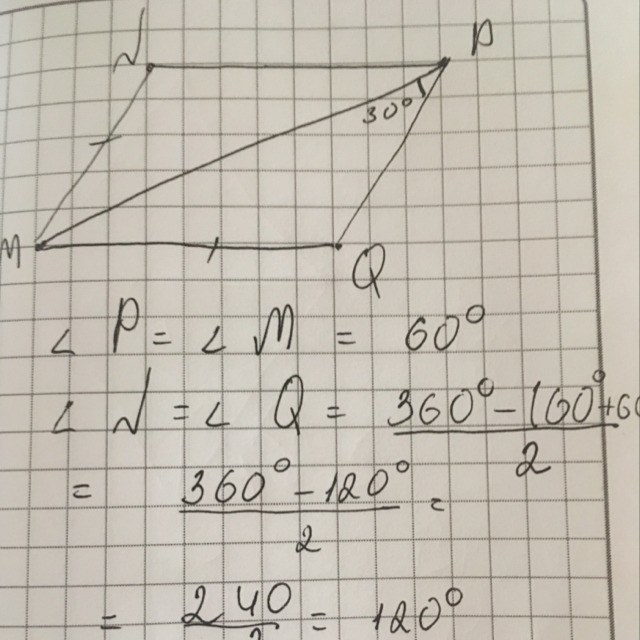 N P
30°
M Q
∠ P = ∠ M = 60°
∠ N = ∠ Q = (360° - (60° + 60)/2
= (360° - 120°)/2 =
= 240/2 = 120°